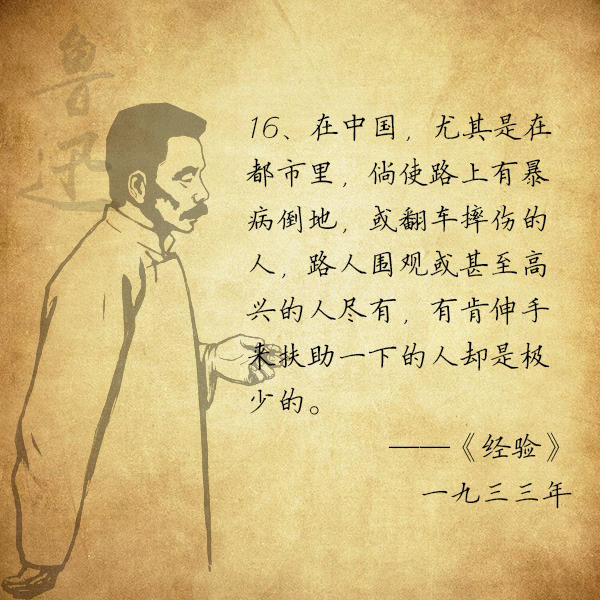 鲁迅
16、在中国，尤其是在
都市里，倘使路上有暴
病倒地，或翻车摔伤的
人，路人围观或甚至高
兴的人尽有，有肯伸手
来扶助一下的人却是极
少的。
——《经验》
一九三三年